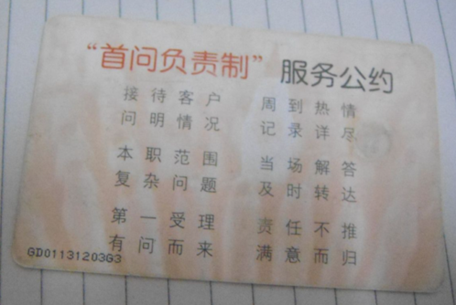 “首问负责制”服务公约
接待客户 周到热情
问明情况 记录详尽
本职范围 当场解答
复杂问题 及时转达
第一受理 责任不推
有问而来 满意而归
GD01131203G3